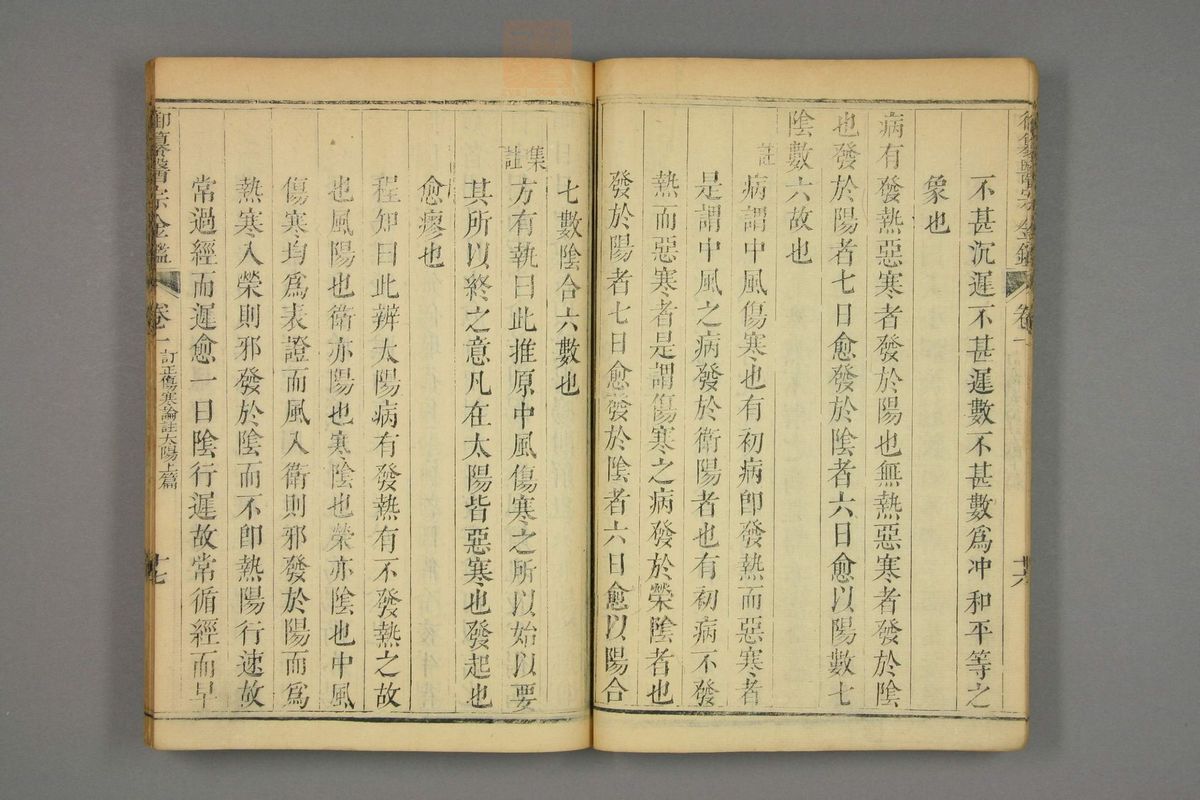 不甚沉遲不甚遲數不甚數爲冲和平等之
象也
病有發熱惡寒者發於陽也無熱惡寒者發於陰
也發於陽者七日愈發於陰者六日愈以陽數七
陰數六故也
註
病謂中風傷寒也有初病卽發熱而惡寒者
是謂中風之病發於衛陽者也有初病不發
熱而惡寒者是謂傷寒之病發於榮陰者也
發於陽者七日愈發於陰者六日愈以陽合
七數陰合六數也
集註
方有執曰此推原中風傷寒之所以始以要
其所以終之意凡在太陽皆惡寒也發起也
愈瘳也
程知曰此辨太陽病有發熱有不發熱之故
也風陽也衛亦陽也寒陰也榮亦陰也中風
傷寒均爲表證而風入衛則邪發於陽而爲
熱寒入榮則邪發於陰而不卽熱陽行速故
常過經而遲愈一日陰行遲故常循經而早
御纂醫宗金鑑
卷一
訂正傷寒論註太陽上篇
廿七
御纂醫宗金鑑
卷一
廿六